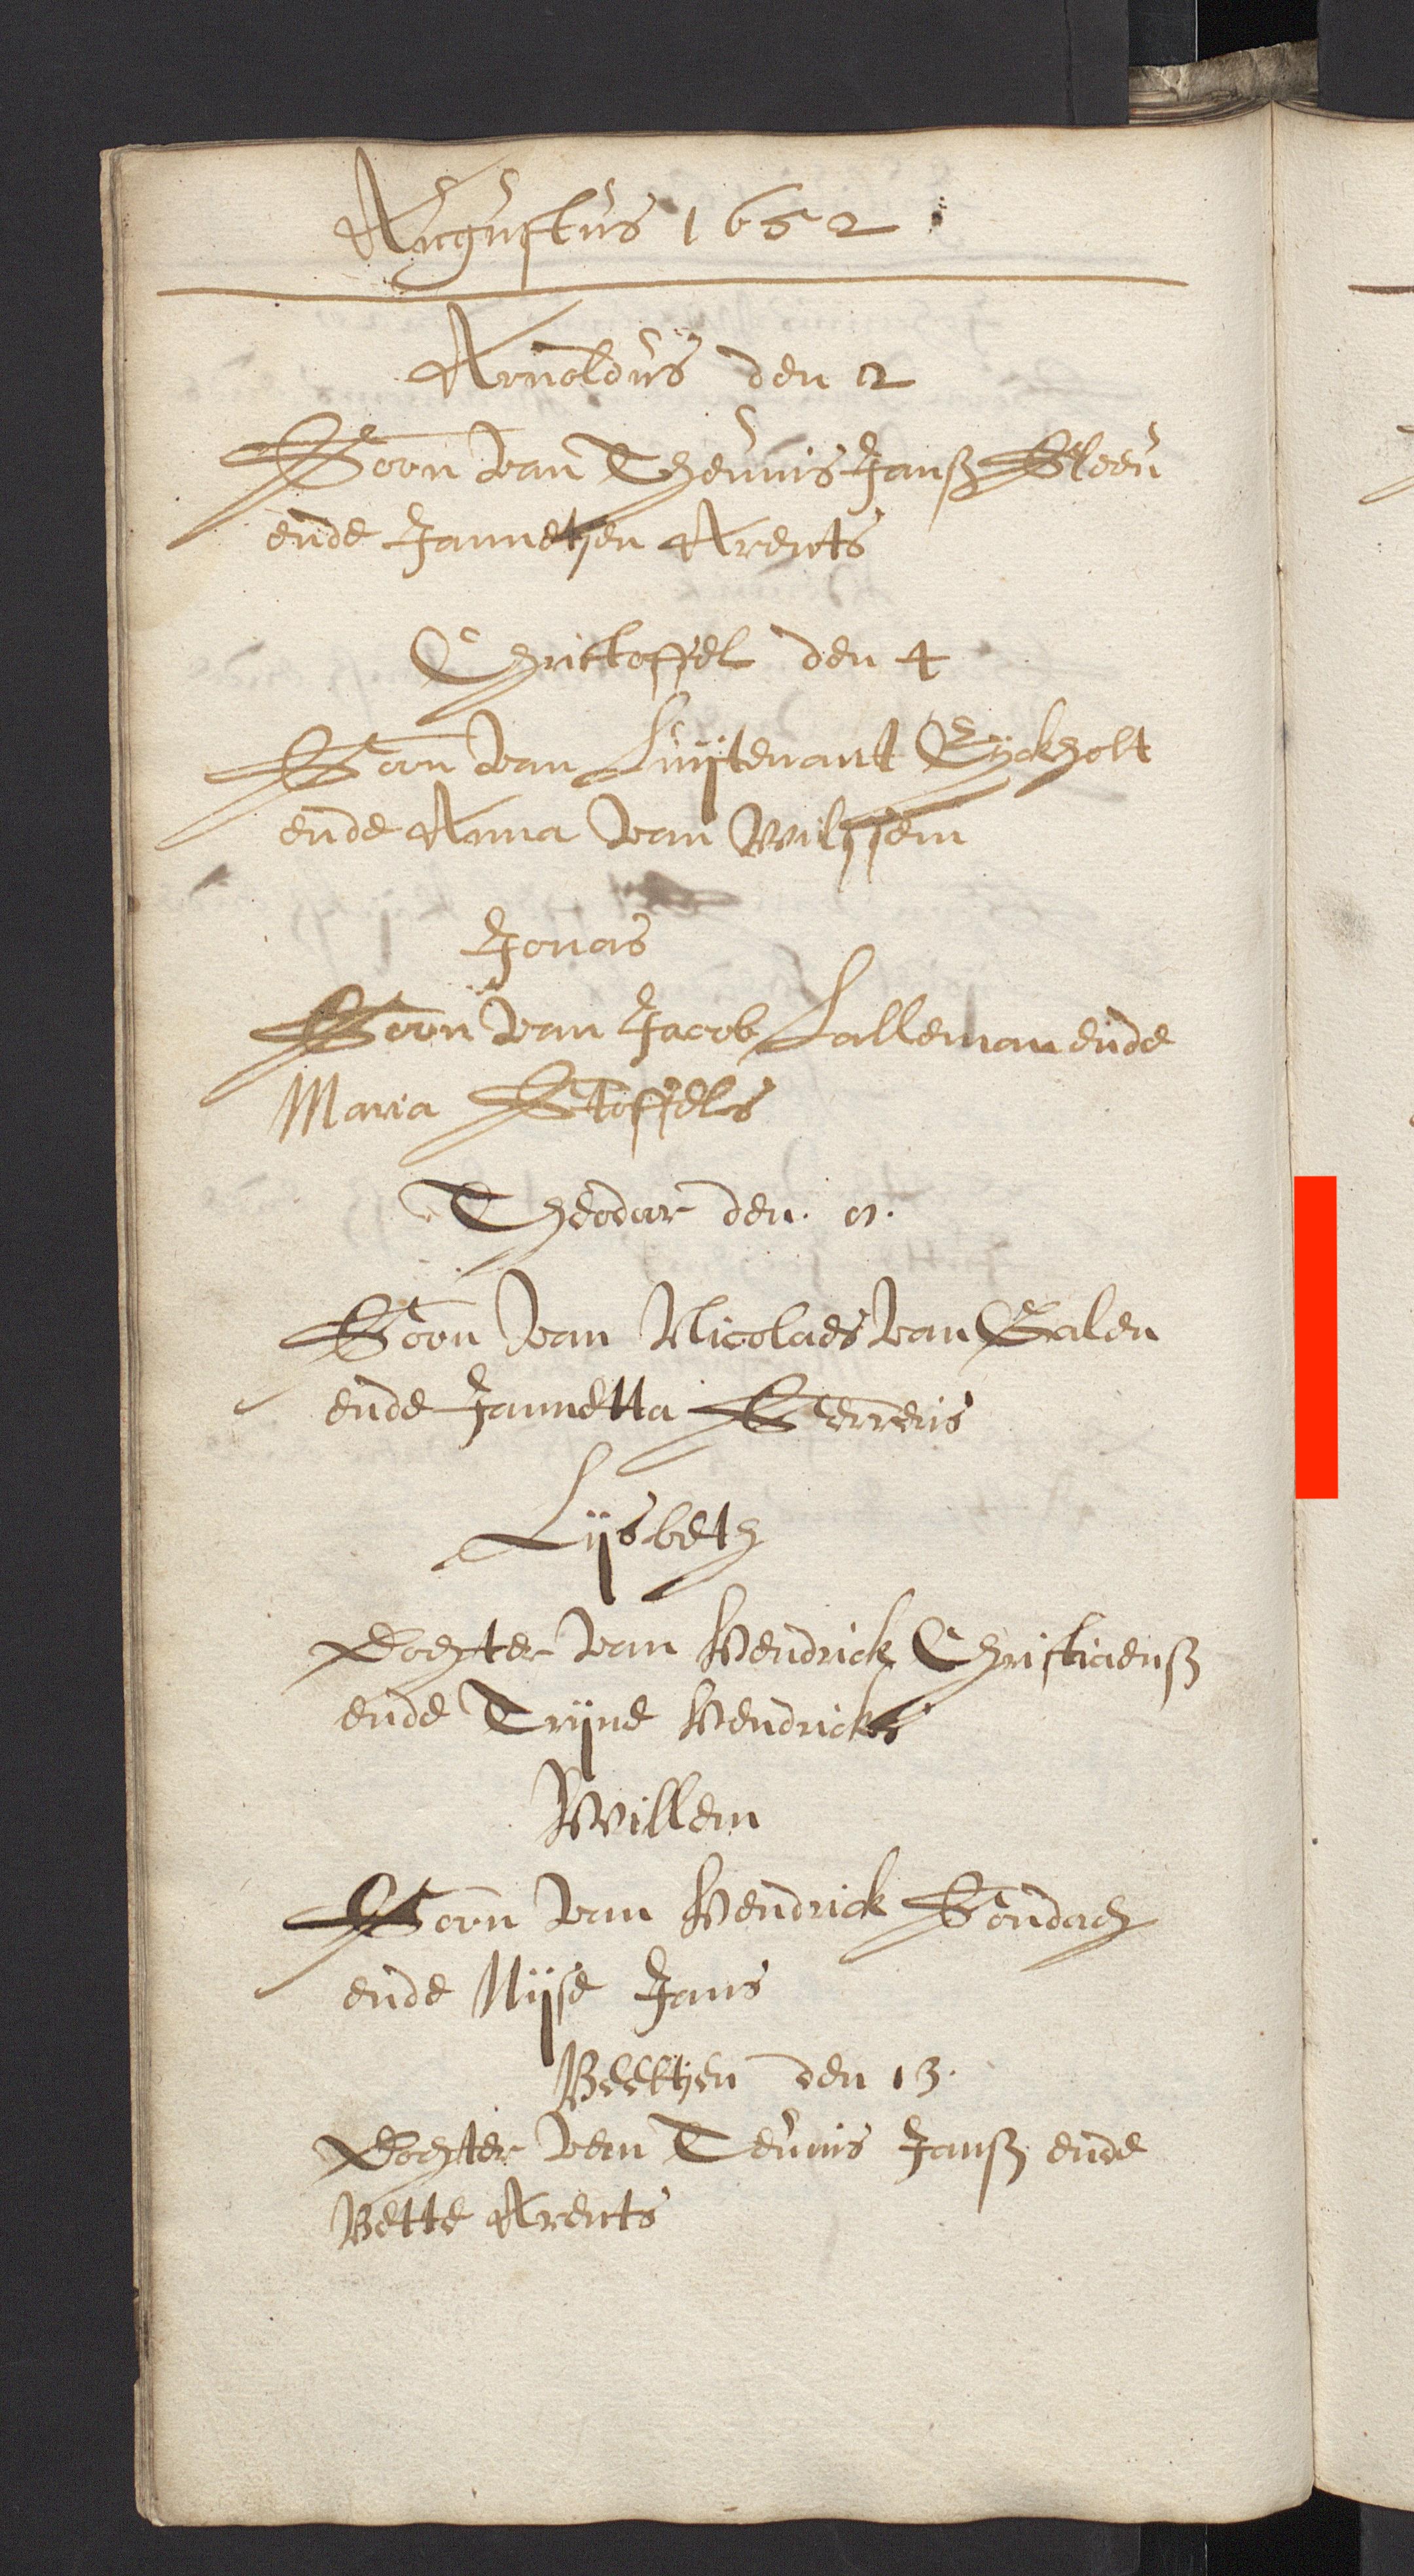 Augustus 1652
Arnoldus den 2
Soon van Theunis Janß Sleeu
ende Jannetjen Arents
Christoffel den 4
Soon van Luijtenant Eyckholt
ende Anna van Wilssem
Jonas
Soon van Jacob Lalleman ende
Maria Stoffels
Theodor den
Soon van Nicolaes van Galen
ende Jannetta
Lijsbeth
Dochter van Hendrick Christiaenß
ende Trijne Hendricks
Willem
Soon van Hendrick Sondach
ende Nijse Jans
Beeltjen den 13.
Dochter van Teunis Janß ende
Bette Arents